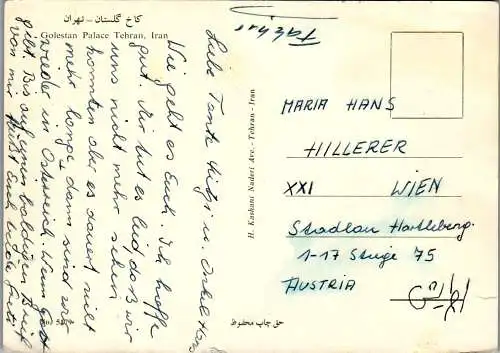 کاخ گلستان - تهران
Golestan Palace Tehran, Iran
Liebe Tante Mitzi u. Onkel Hans
Wie geht es Euch. Ich hoffe
gut. Mir tut es leid daß wir
uns nicht mehr sehen
konnten aber es dauert nicht
mehr lange dann sind wir
wieder in Österreich. Wenn Gott
gibt. Bis auf einen baldigen Brief
von mir grüßt Euch
H. Kashani Naderi Ave. - Tehran - Iran
MARIA HANS
HILLERER
XXI WIEN
Stadlau Hartleberg.
1-17 Stiege 75
AUSTRIA
حق چاپ محفوظ